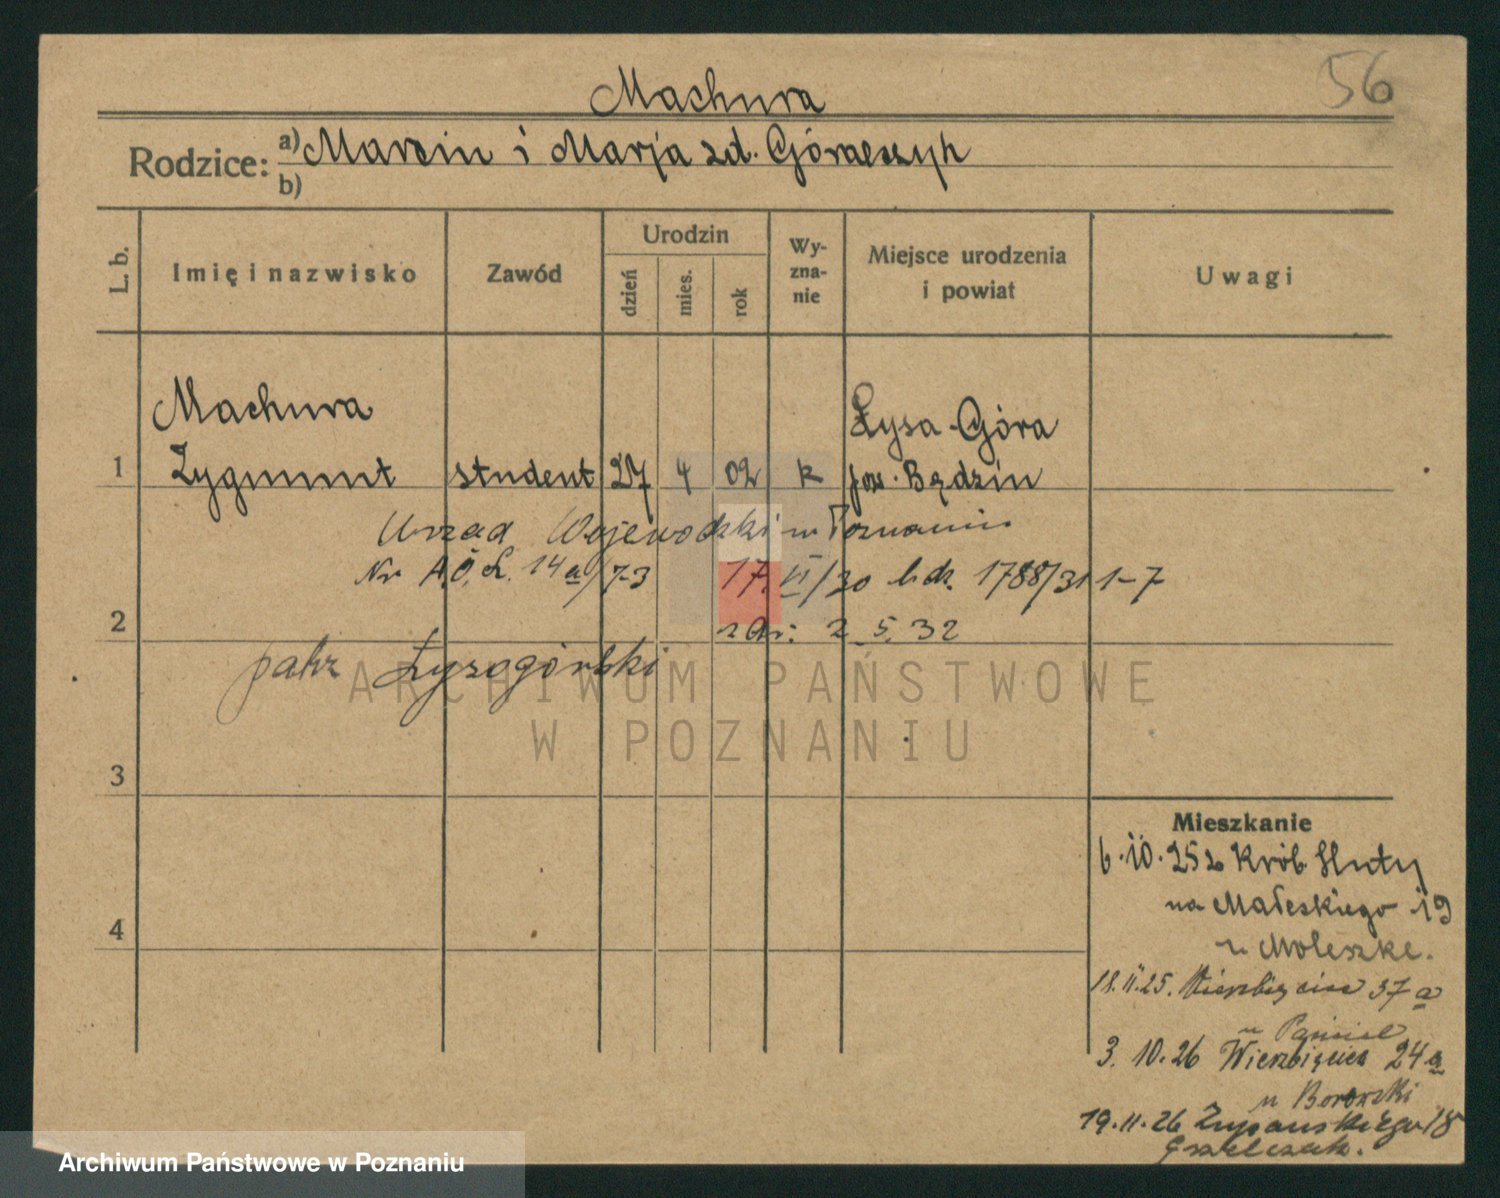 56
Machura
Rodzice: a) Marcin i Marja zd. Góralczyk
b)
L. b.
Imię i nazwisko
Zawód
Urodzin
dzień
mies.
rok
Wy-
zna-
nie
Miejsce urodzenia
i powiat
Uwagi
Machura
Łysa-Góra
1 Zygmunt student 27 4 02 k pow. Będzin
Urząd Wojewodzki w Poznaniu
Nr A.O.L. 14a/7-3 17.VI/30 l.dz. 1788/31 1-7
2 2.5.32
patrz Łysogórski
ARCHIWUM PAŃSTWOWE
W POZNANIU
3
4
Mieszkanie
6.10.25 z Król. Huty
na Małeckiego 19
u Moleszke.
18.11.25. Wierzbięcice 37a
u
3.10.26 Wierzbięcice 24a
u Borowski
19.11.26 Żupańskiego 18
Grzelczak.
Archiwum Państwowe w Poznaniu